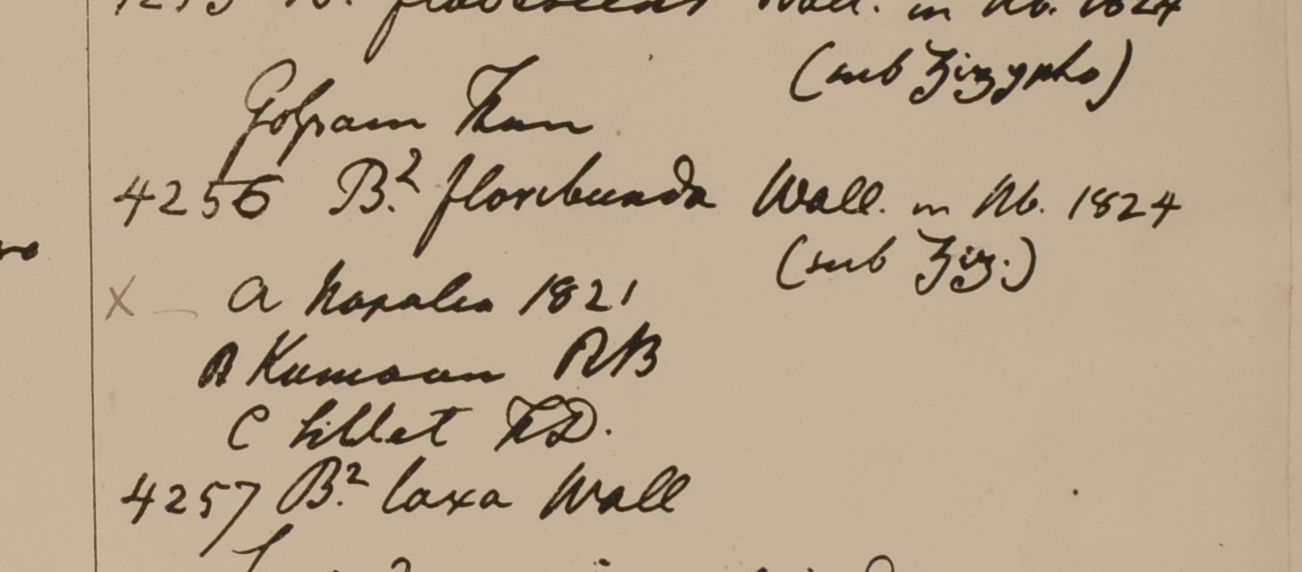 4255 B.² flavescens Wall. in hb. 1824
(sub Zizypho)
Gossam Than
4256 B.² floribunda Wall. in hb. 1824
(sub Ziz.)
X – a Napalia 1821
B Kumaon RB
C Sillet FD.
4257 B.² laxa Wall